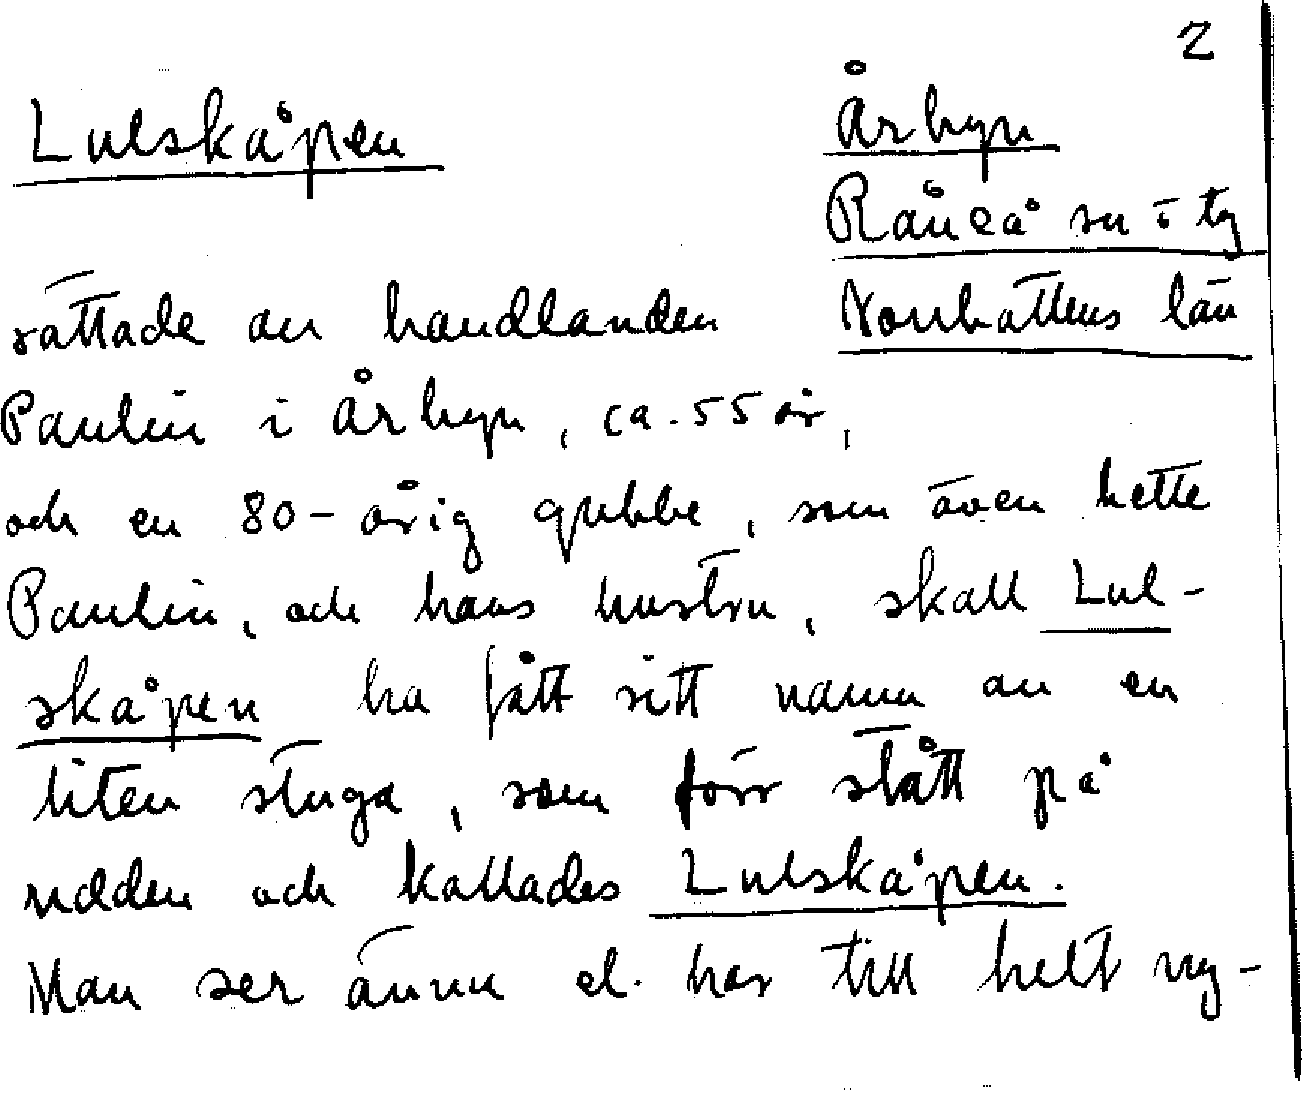 2
Lulskåpen
Årbyn
Råneå sn o tg
Norrbottens län
sattade av handlanden
Paulin i Årbyn, ca. 55 år,
och en 80-årig gubbe, som även hette
Paulin, och hans hustru, skall Lul-
skåpen ha fått sitt namn av en
liten stuga, som förr stått på
udden och kallades Lulskåpen.
Man ser ännu el. har till helt ny-